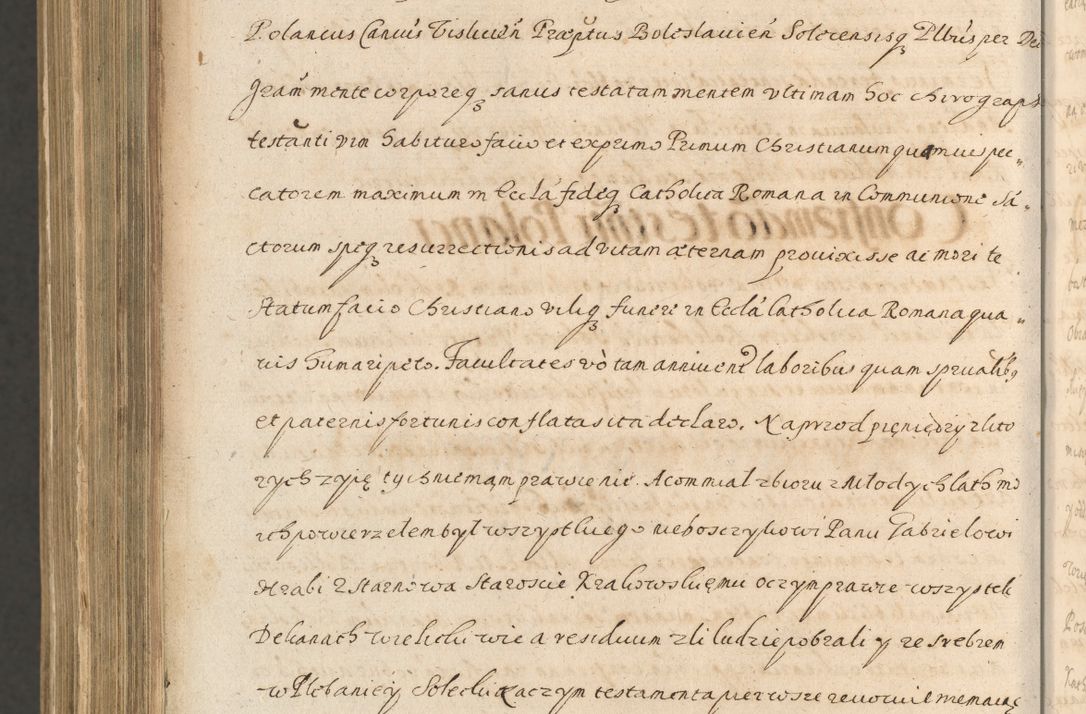 Polancus Cancus Vislicień Præptus Boleslavień Solecensisq Plbus per Dei
gram mente corporeq sanus testatam mentem ultimam hoc chirograph
testanti vim habituro facio et exprimo Primum Christianum quamvis pec„
catorem maximum in Eccla fideq Catholica Romana in Communione Sa„
ctorum speq resurrectionis ad vitam æternam provixisse ac mori te
statum facio Christiano viliq funere in Eccla Catholica Romana qua„
vis humari peto. Facultates vo tam anniuent laboribus quam sprualibq
et paternis fortunis conflatas ita declaro. Naprzod pieniędzy zkto
rych zyię tych niemąm prawie nic. A com miał zbioru z Młodych lath mo
ich powierzełem był wszystkiego nieboszczykowi Panu Gabrielowi
Hrabi z Starnowa Staroscie Krakowskięmu o czym prawie wszystek
Dekanath wie a residuum zli ludzie pobrali y ze srebrem
w Plebaniey Soleckiey a czym testamenta pierwsze